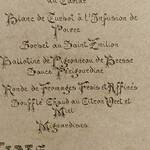 au Caviar
Blanc de Turbot à l'Infusion de
Poivre
Sorbet au Saint-Emilion
Ballotine de Pigeonneau de Bresse
Sauce Périgourdine
Ronde de Fromages Frais et Affinés
Soufflé Chaud au Citron Vert et
Miel
Mignardises